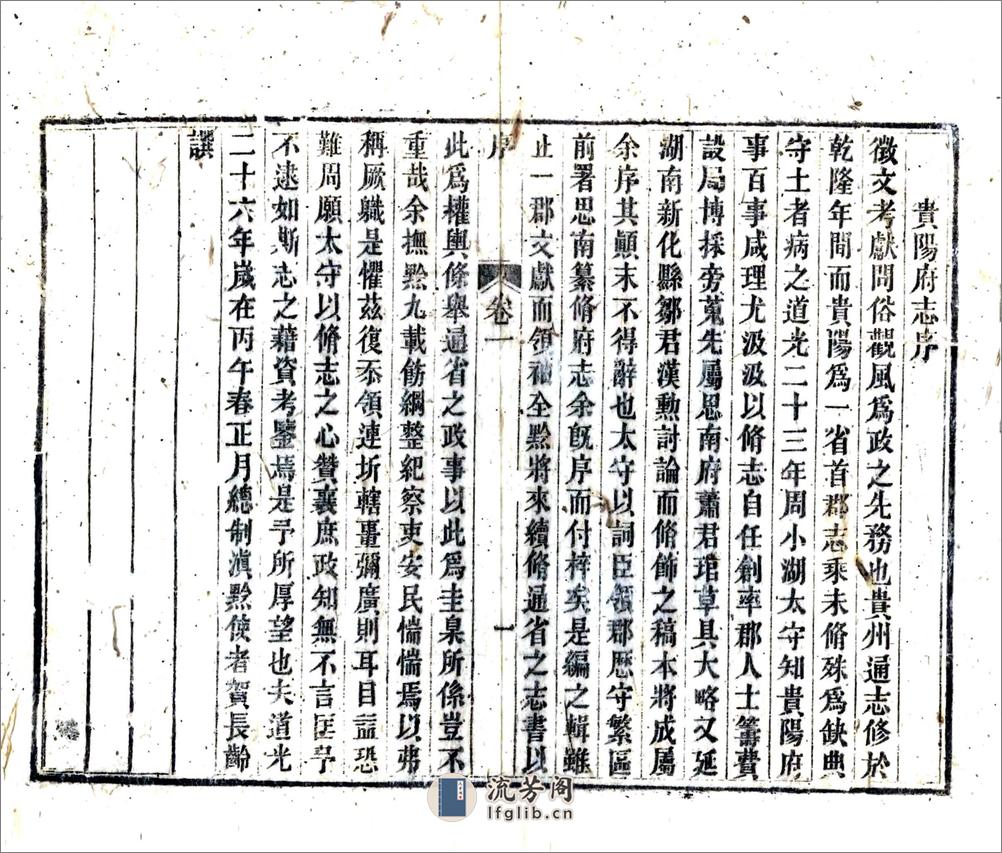 貴陽府志序
徵文考獻問俗觀風爲政之先務也貴州通志修於
乾隆年間而貴陽爲一省首郡志乘未脩殊爲缺典
守土者病之道光二十三年周小湖太守知貴陽府
事百事咸理尤汲汲以脩志自任創率郡人士籌費
設局博採旁蒐先屬思南府蕭君琯草具大略又延
湖南新化縣鄒君漢勳討論而脩飾之稿本將成屬
余序其顛末不得辭也太守以詞臣領郡歷守繁區
前署思南纂脩府志余既序而付梓矣是編之輯雖
止一郡文獻而領袖全黔將來續脩通省之志書以
序
卷一
一
此爲權輿條舉通省之政事以此爲圭臬所係豈不
重哉余撫黔九載飭綱整紀察吏安民惴惴焉以弗
稱厥職是懼茲復忝領連圻轄畺彌廣則耳目益恐
難周願太守以脩志之心贊襄庶政知無不言匡予
不逮如斯志之藉資考鑒焉是予所厚望也夫道光
二十六年歲在丙午春正月總制滇黔使者賀長齡
譔
流芳阁
lfglib.cn